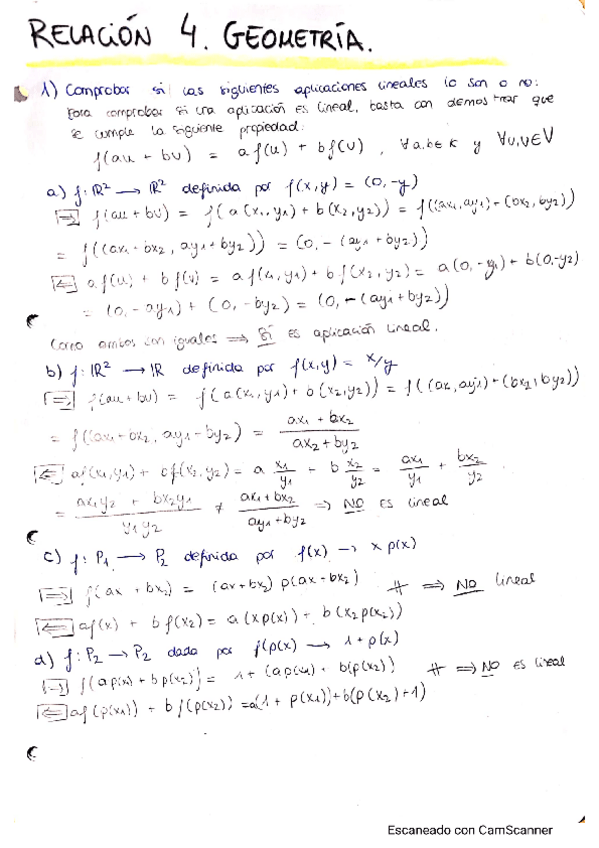 RELACIÓN 4. GEOMETRÍA.
1) Comprobar si las siguientes aplicaciones lineales lo son o no:
Para comprobar si una aplicación es lineal, basta con demostrar que
se cumple la siguiente propiedad:
f(au + bv) = a f(u) + b f(v) , ∀a,b∈K y ∀u,v∈V
a) f: ℝ² → ℝ² definida por f(x,y) = (0,-y)
[⇒] f(au + bv) = f(a(x₁,y₁) + b(x₂,y₂)) = f((ax₁,ay₁)+(bx₂,by₂))
= f((ax₁+bx₂, ay₁+by₂)) = (0, -(ay₁+by₂))
[⇐] a f(u) + b f(v) = a f(x₁,y₁) + b f(x₂,y₂) = a(0,-y₁) + b(0,-y₂)
= (0,-ay₁) + (0,-by₂) = (0, -(ay₁+by₂))
Como ambos son iguales ⇒ SÍ es aplicación lineal.
b) f: ℝ² → ℝ definida por f(x,y) = x/y
[⇒] f(au+bv) = f(a(x₁,y₁) + b(x₂,y₂)) = f((ax₁,ay₁)+(bx₂,by₂))
= f((ax₁+bx₂, ay₁+by₂)) = (ax₁ + bx₂)/(ax₂ + by₂)
[⇐] af(x₁,y₁) + bf(x₂,y₂) = a x₁/y₁ + b x₂/y₂ = ax₁/y₁ + bx₂/y₂
= (ax₁y₂ + bx₂y₁)/(y₁y₂) ≠ (ax₁+bx₂)/(ay₁+by₂) ⇒ NO es lineal
c) f: P₁ → P₂ definida por f(x) → x p(x)
[⇒] f(ax + bx₂) = (ax+bx₂) p(ax+bx₂) ≠ ⇒ NO lineal
[⇐] af(x) + bf(x₂) = a(xp(x)) + b(x₂p(x₂))
d) f: P₂ → P₂ dada por f(p(x) → 1+p(x)
[⇒] f(ap(x) + bp(x₂)) = 1 + (ap(x₁) + b(p(x₂)) ≠ ⇒ NO es lineal
[⇐] af(p(x₁)) + bf(p(x₂)) = a(1 + p(x₁)) + b(p(x₂)+1)
Escaneado con CamScanner